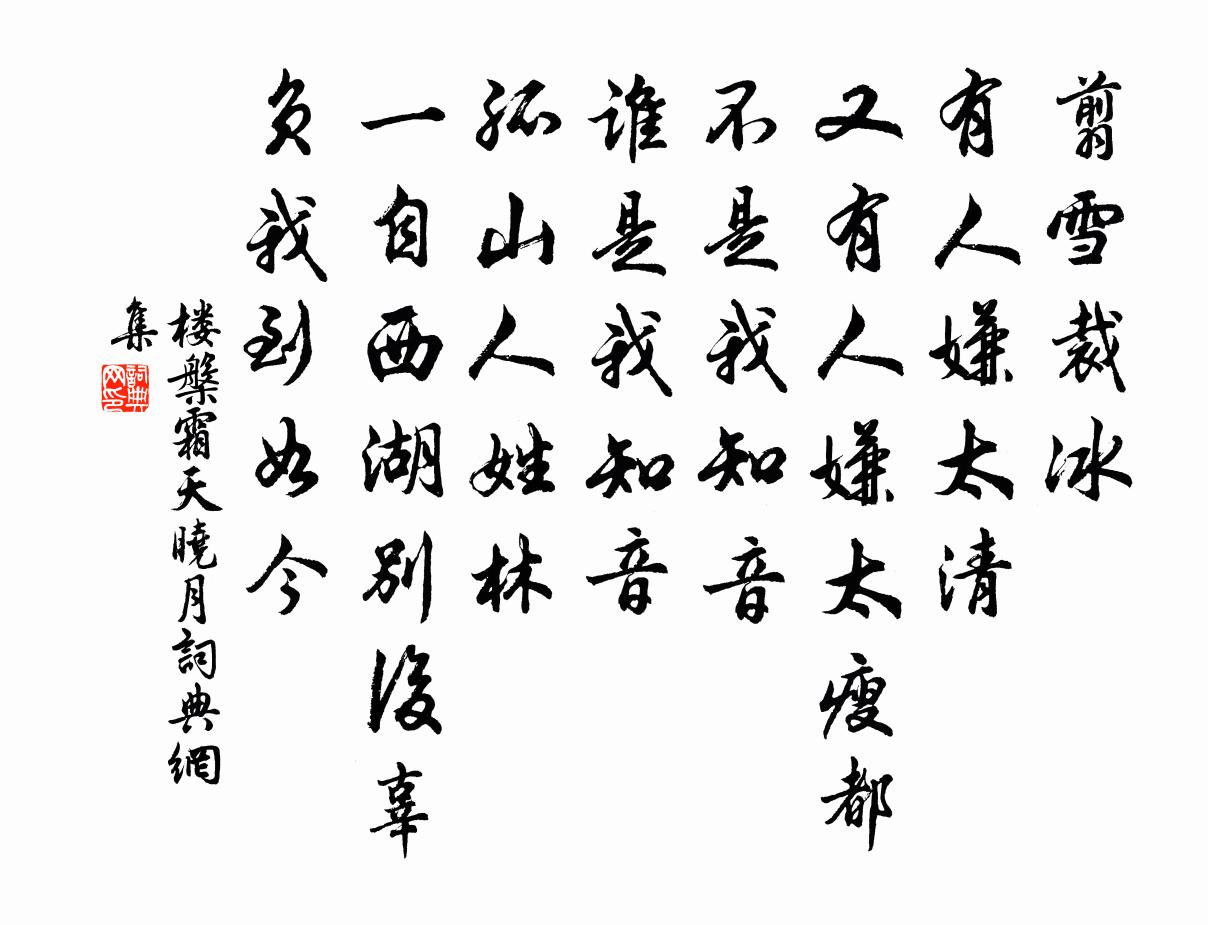 翦雪裁冰
有人嫌太清
又有人嫌太瘦都
不是我知音
谁是我知音
孤山人姓林
一自西湖别後辜
负我到如今
楼槃霜天曉月詞典網
集
詞典
网印